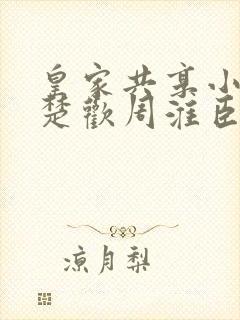 皇家共享小
楚歡周淮臣
凉月梨